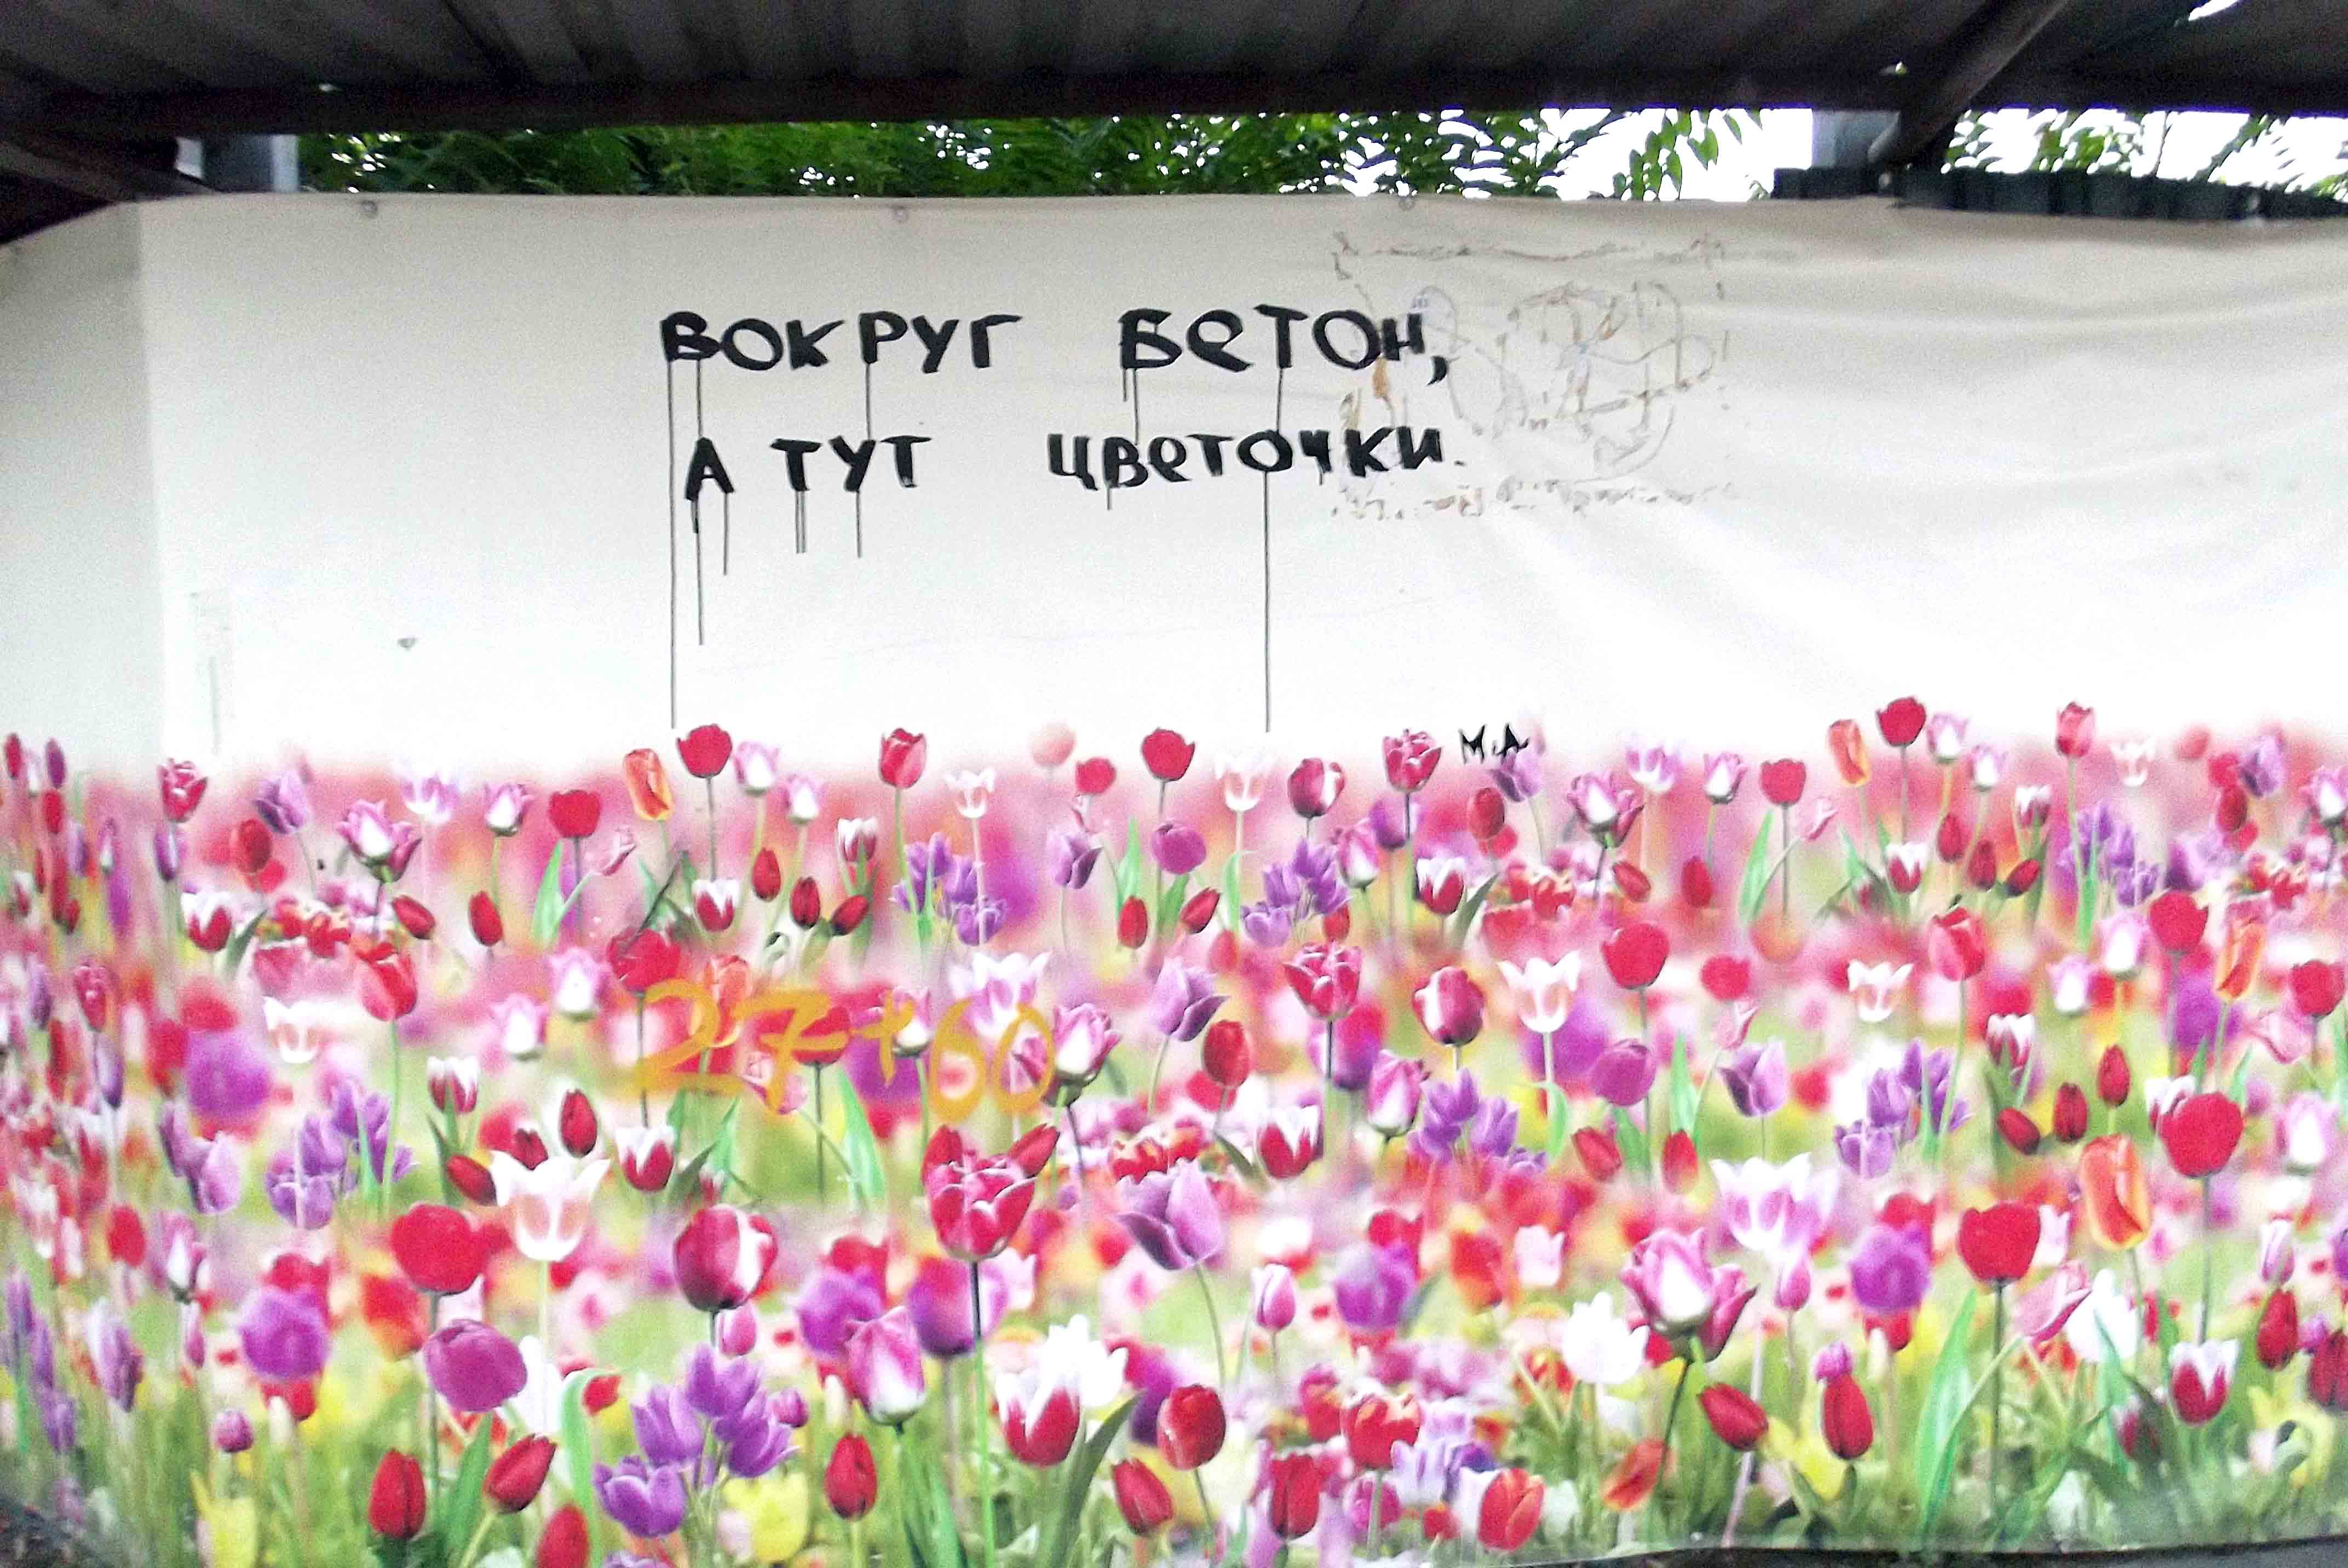 ВОКРУГ БЕТОН,
А ТУТ ЦВЕТОЧКИ.
М.А
27+60